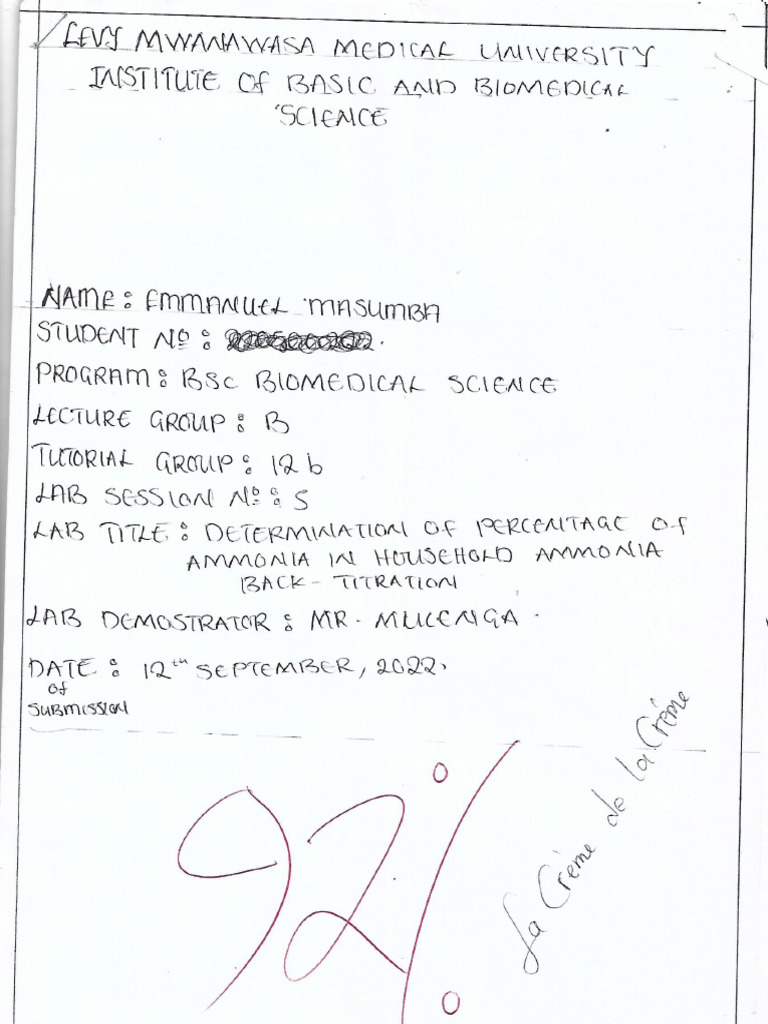 LEVY MWANAWASA MEDICAL UNIVERSITY
INSTITUTE OF BASIC AND BIOMEDICAL
SCIENCE
NAME: EMMANUEL MASUMBA
STUDENT No:
PROGRAM: BSC BIOMEDICAL SCIENCE
LECTURE GROUP: B
TUTORIAL GROUP: 12b
LAB SESSION No: 5
LAB TITLE: DETERMINATION OF PERCENTAGE OF
AMMONIA IN HOUSEHOLD AMMONIA
BACK-TITRATION
LAB DEMOSTRATOR: MR. MULENGA.
DATE: 12th SEPTEMBER, 2022.
of
SUBMISSION
92%
La Crème de la Crème